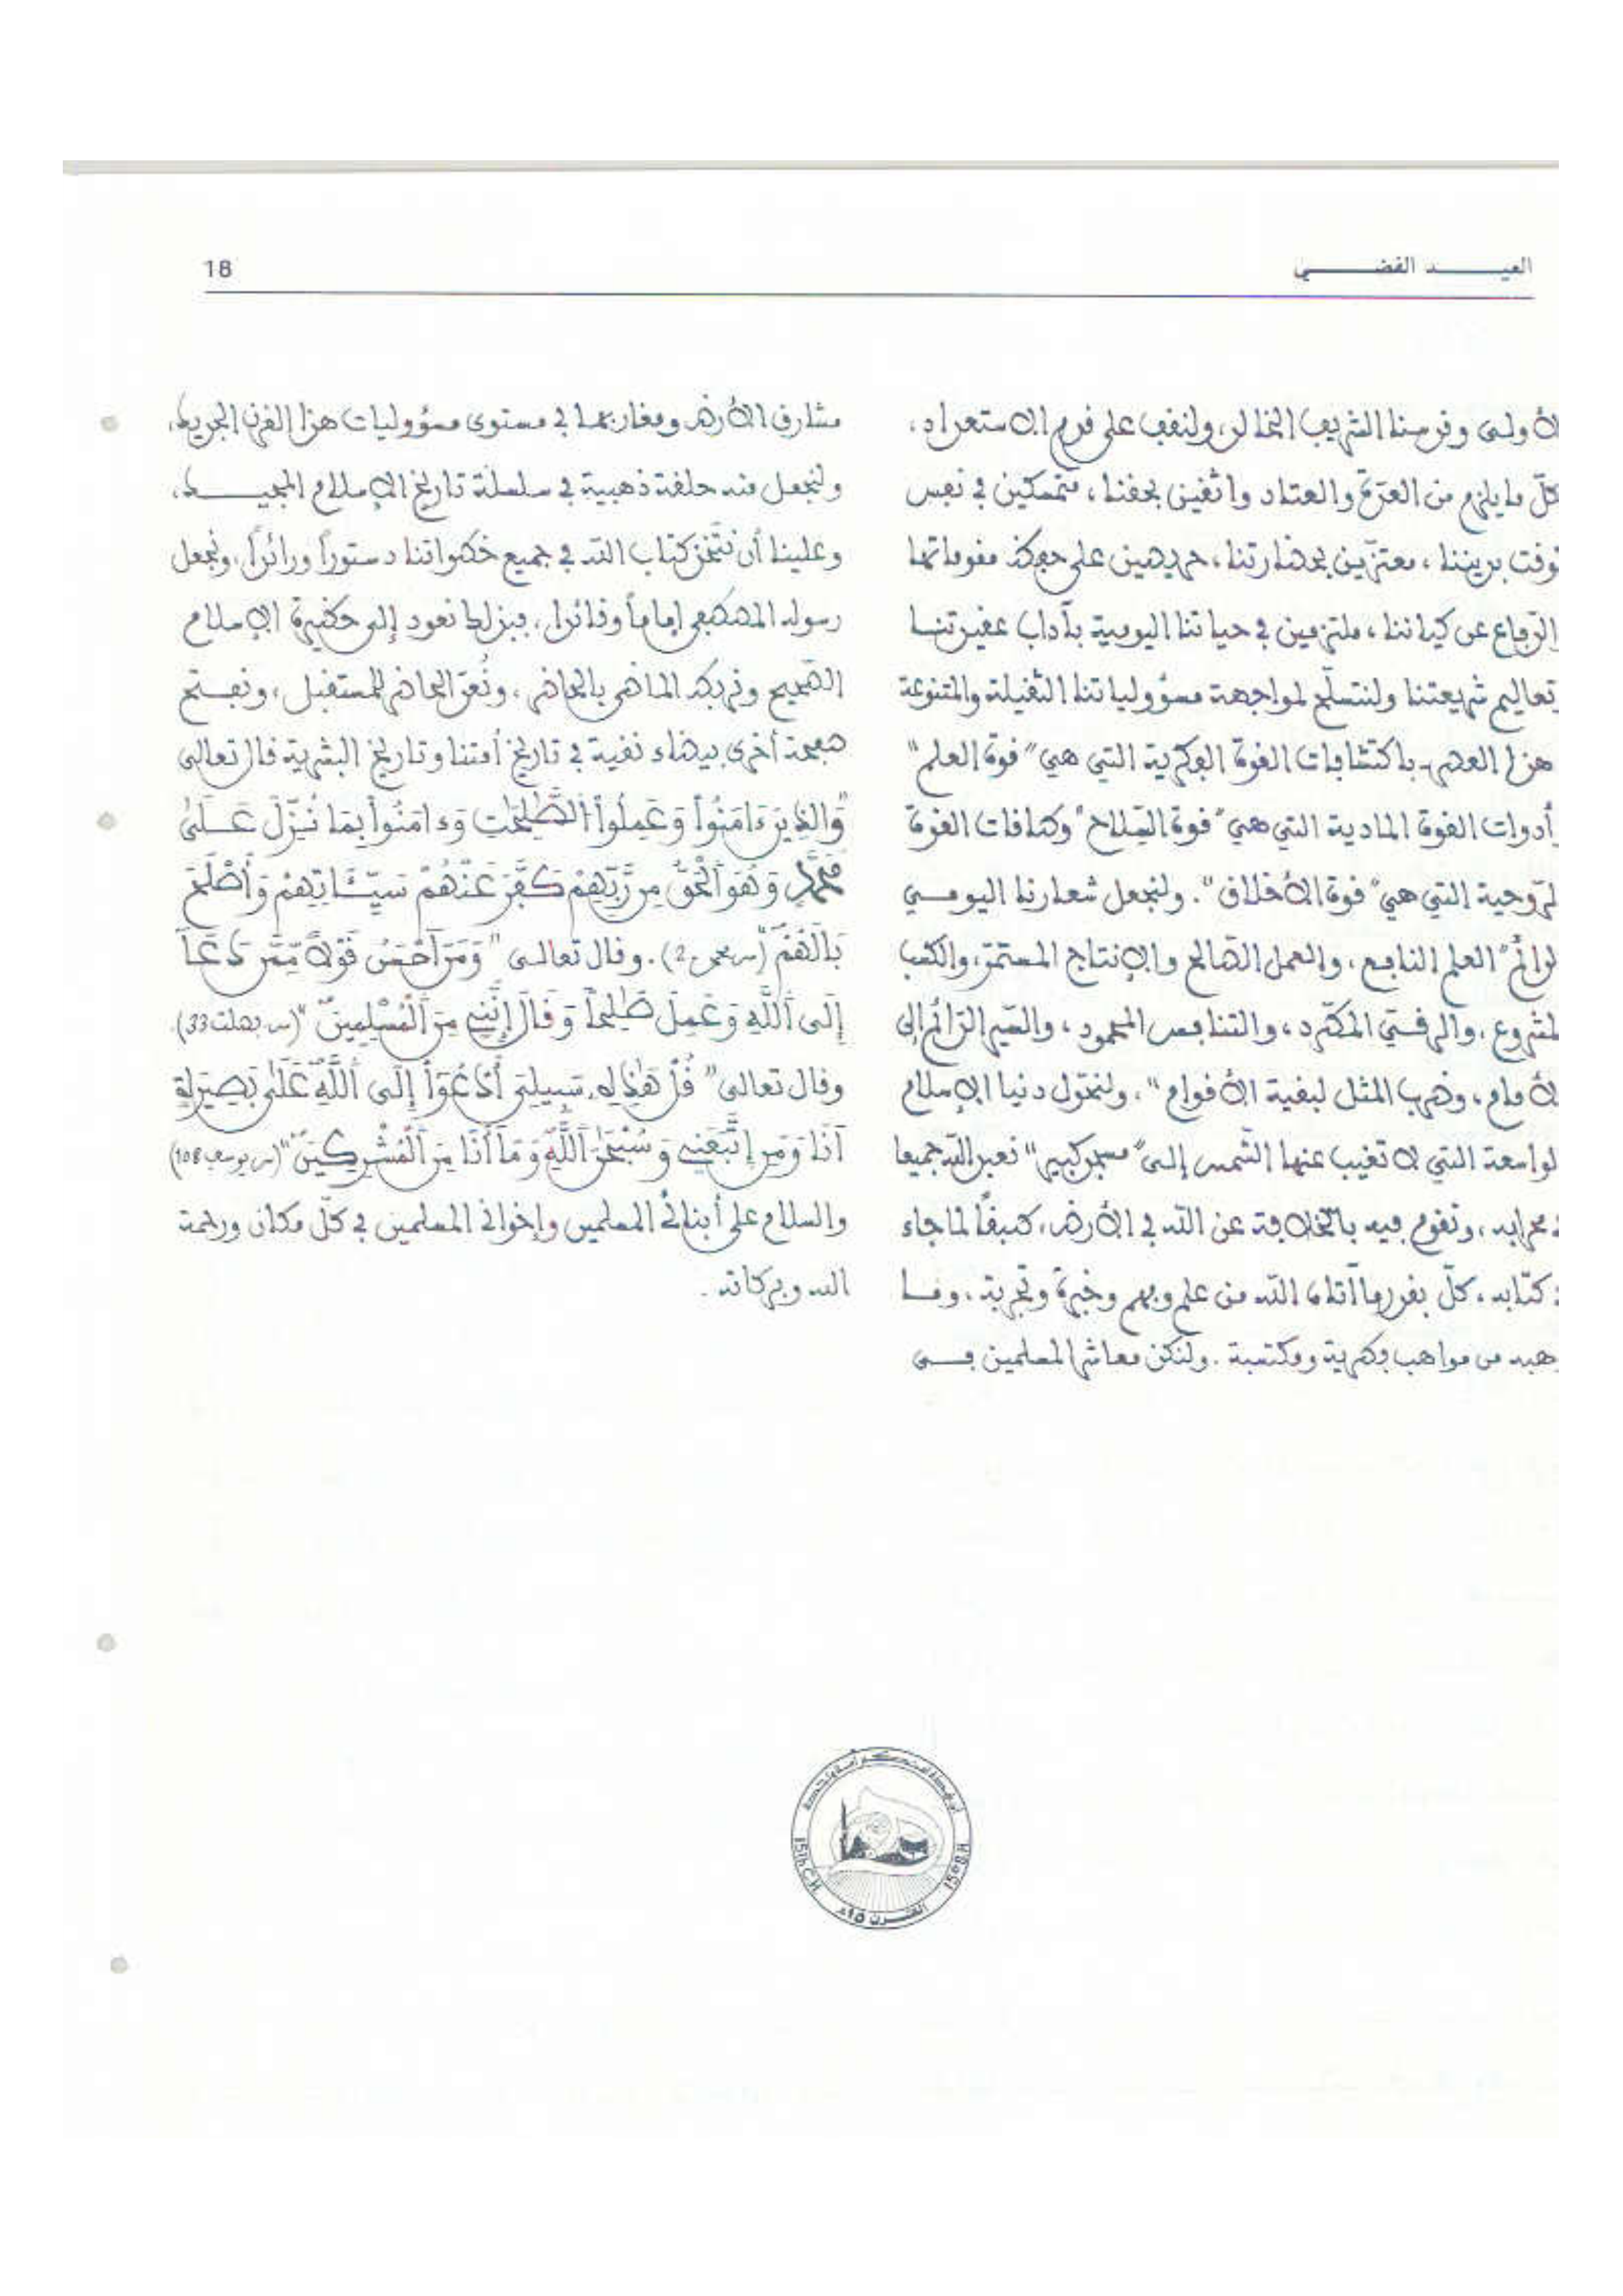 العيد الفضي
18
لأولى وقدسنا الشريف الخالد، ولنقف على قدم الاستعداد،
كلّ ما يلزم من العدّة والعتاد واثقين بحقنا، متمسكين في نفس
وقت بديننا، معتزّين بحضارتنا، حريصين على حفظ مقوماتها
الدّفاع عن كياننا، ملتزمين في حياتنا اليومية بآداب عقيدتنا
تعاليم شريعتنا ولنتسلّح لمواجهة مسؤولياتنا الثقيلة والمتنوعة
هذا العصر، باكتشافات القوة الفكرية التي هي "قوة العلم"
أدوات القوة المادية التي هي "قوة السّلاح" وطاقات القوة
لرّوحية التي هي "قوة الأخلاق". ولنجعل شعارنا اليومي
لدائم "العلم النافع، والعمل الصّالح والإنتاج المستمّر، والكسب
لمشروع، والرقيّ المطّرد، والتنافس المحمود، والسّير الدّائم إلى
لأمام، وضرب المثل لبقية الأقوام"، ولنحوّل دنيا الإسلام
لواسعة التي لا تغيب عنها الشّمس إلى "مسجد كبير" نعبد الله جميعا
محرابه، ونقوم فيه بالخلافة عن الله في الأرض، طبقاً لما جاء
كتابه، كلّ بقدر ما آتاه الله من علم وفهم وخبرة وتجربة، وما
هبه من مواهب فطرية ومكتسبة. ولنكن معاشر المسلمين فى
مشارق الأرض ومغاربها في مستوى مسؤوليات هذا القرن الجديد،
ولنجعل منه حلقة ذهبية في سلسلة تاريخ الإسلام المجيد،
وعلينا أن نتّخذ كتاب الله في جميع خطواتنا دستوراً ورائداً، ونجعل
رسوله المصطفى إماماً وقائدا، فبذلك نعود إلى حظيرة الإسلام
الصّحيح ونربط الماضي بالحاضر، ونُعدّ الحاضر للمستقبل، ونفتح
صفحة أخرى بيضاء نقية في تاريخ أمتنا وتاريخ البشرية قال تعالى
"وَالذِينَ ءَامَنُواْ وَعَمِلُواْ الصَّٰلِحَٰتِ وَءَامَنُواْ بِمَا نُزِّلَ عَلَىٰ
مُحَمَّدٍ وَهُوَ اَلْحَقُّ مِن رَّبِّهِمْ كَفَّرَ عَنْهُمْ سَيِّـَٔاتِهِمْ وَأَصْلَحَ
بَالَهُمْ" (س محمد 2). وقال تعالى "وَمَنَ اَحْسَنُ قَوْلاً مِّمَّن دَعَآ
إِلَى اَللَّهِ وَعَمِلَ صَٰلِحاً وَقَالَ إِنَّنِي مِنَ اَلْمُسْلِمِينَ" (س فصلت 33).
وقال تعالى "قُلْ هَٰذِهِۦ سَبِيلِيَ أَدْعُوٓاْ إِلَى اَللَّهِ عَلَىٰ بَصِيرَةٍ
اَنَا وَمَنِ اِتَّبَعَنِي وَسُبْحَٰنَ اَللَّهِ وَمَآ أَنَا مِنَ اَلْمُشْرِكِينَ" (س يوسف 108)
والسلام على أبنائي المسلمين وإخواني المسلمين في كلّ مكان ورحمة
الله وبركاته.
15th C.H
القرن 15 هـ
15e S.H